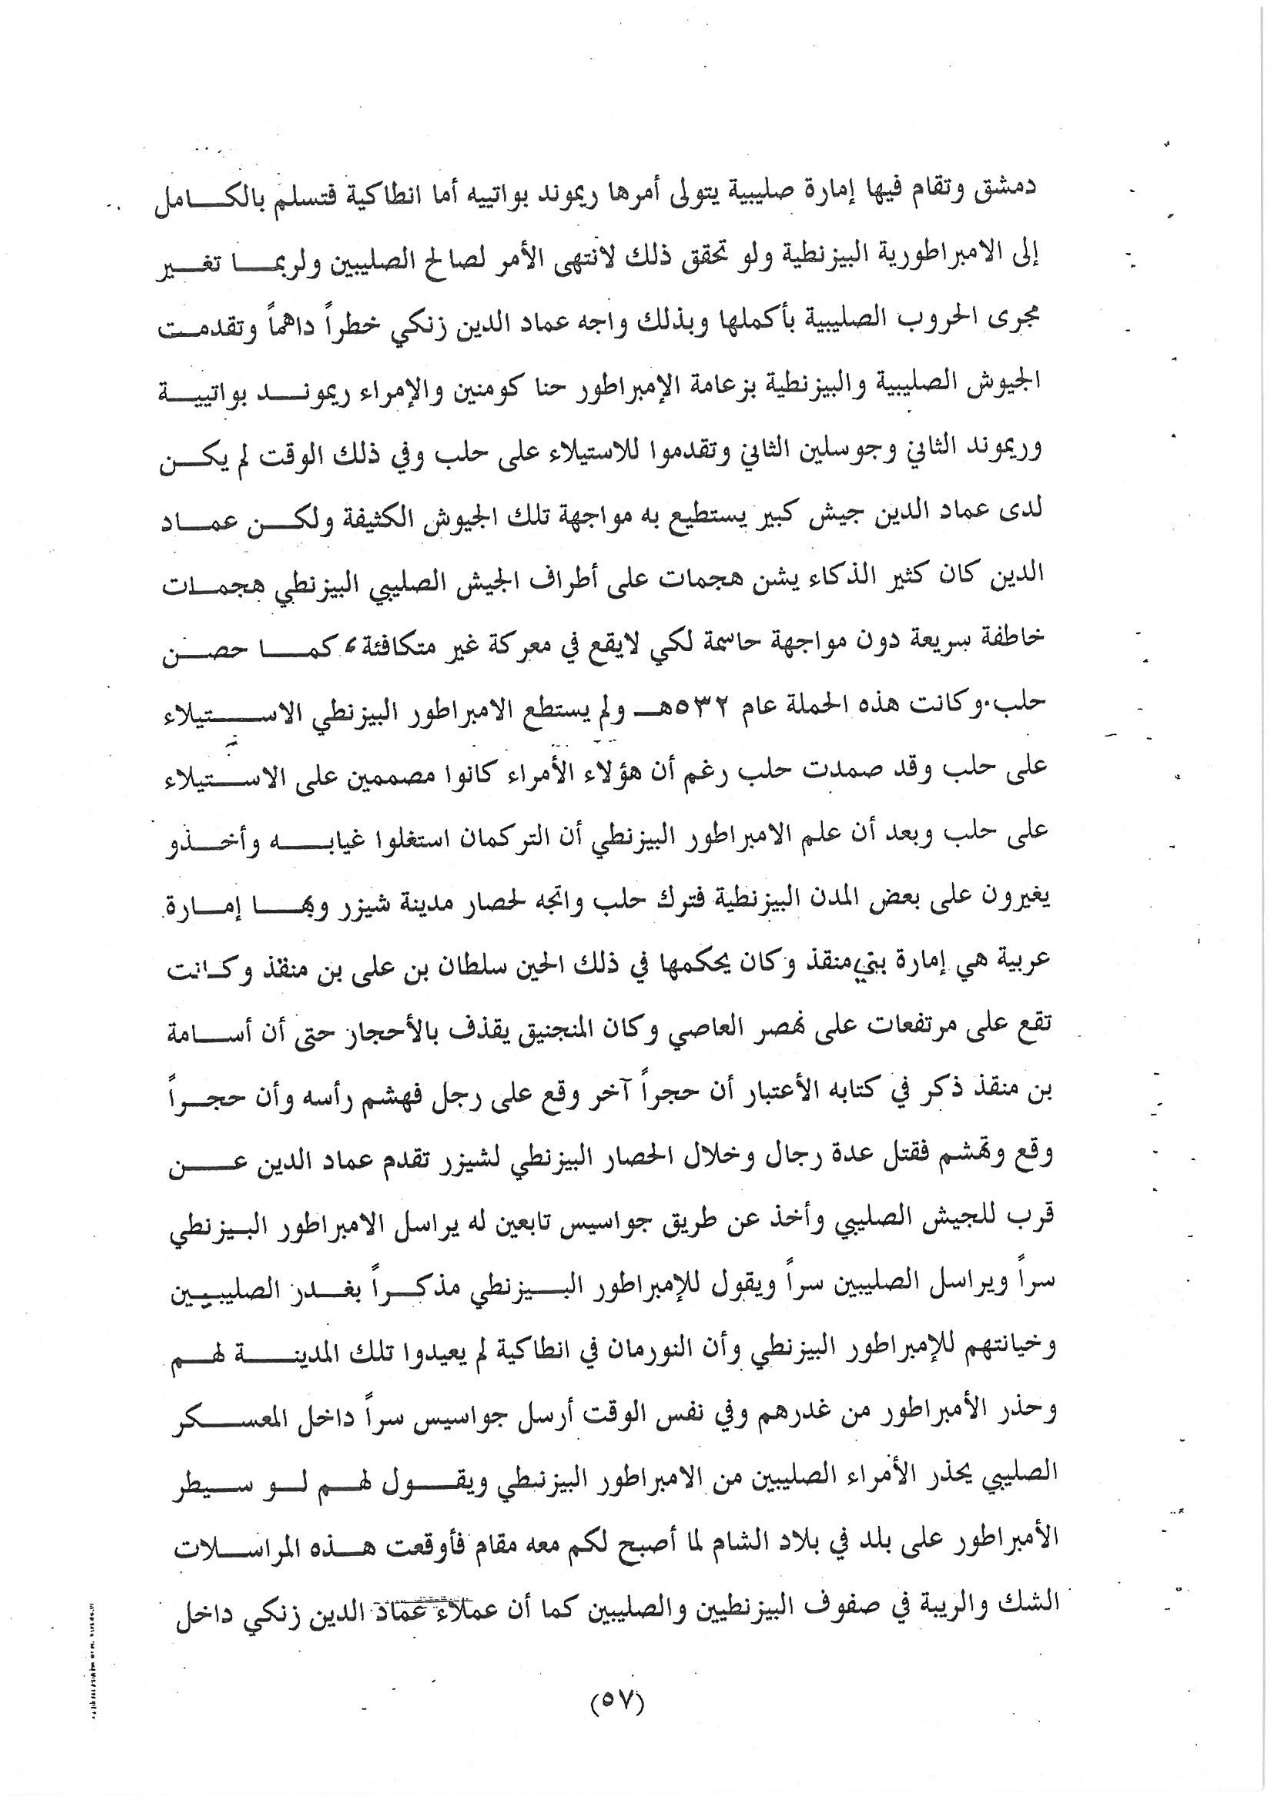 دمشق وتقام فيها إمارة صليبية يتولى أمرها ريموند بواتييه أما انطاكية فتسلم بالكامل
إلى الامبراطورية البيزنطية ولو تحقق ذلك لانتهى الأمر لصالح الصليبين ولربما تغير
مجرى الحروب الصليبية بأكملها وبذلك واجه عماد الدين زنكي خطراً داهماً وتقدمت
الجيوش الصليبية والبيزنطية بزعامة الإمبراطور حنا كومنين والإمراء ريموند بواتيية
وريموند الثاني وجوسلين الثاني وتقدموا للاستيلاء على حلب وفي ذلك الوقت لم يكن
لدى عماد الدين جيش كبير يستطيع به مواجهة تلك الجيوش الكثيفة ولكن عماد
الدين كان كثير الذكاء يشن هجمات على أطراف الجيش الصليبي البيزنطي هجمات
خاطفة سريعة دون مواجهة حاسمة لكي لايقع في معركة غير متكافئة، كما حصن
حلب. وكانت هذه الحملة عام ٥٣٢هـ ولم يستطع الامبراطور البيزنطي الاستيلاء
على حلب وقد صمدت حلب رغم أن هؤلاء الأمراء كانوا مصممين على الاستيلاء
على حلب وبعد أن علم الامبراطور البيزنطي أن التركمان استغلوا غيابه وأخذو
يغيرون على بعض المدن البيزنطية فترك حلب واتجه لحصار مدينة شيزر وبها إمارة
عربية هي إمارة بني منقذ وكان يحكمها في ذلك الحين سلطان بن على بن منقذ وكانت
تقع على مرتفعات على نهصر العاصي وكان المنجنيق يقذف بالأحجار حتى أن أسامة
بن منقذ ذكر في كتابه الأعتبار أن حجراً آخر وقع على رجل فهشم رأسه وأن حجراً
وقع وتهشم فقتل عدة رجال وخلال الحصار البيزنطي لشيزر تقدم عماد الدين عن
قرب للجيش الصليبي وأخذ عن طريق جواسيس تابعين له يراسل الامبراطور البيزنطي
سراً ويراسل الصليبين سراً ويقول للإمبراطور البيزنطي مذكراً بغدر الصليبيين
وخيانتهم للإمبراطور البيزنطي وأن النورمان في انطاكية لم يعيدوا تلك المدينة لهم
وحذر الأمبراطور من غدرهم وفي نفس الوقت أرسل جواسيس سراً داخل المعسكر
الصليبي يحذر الأمراء الصليبين من الامبراطور البيزنطي ويقول لهم لو سيطر
الأمبراطور على بلد في بلاد الشام لما أصبح لكم معه مقام فأوقعت هذه المراسلات
الشك والريبة في صفوف البيزنطيين والصليبين كما أن عملاء عماد الدين زنكي داخل
(٥٧)